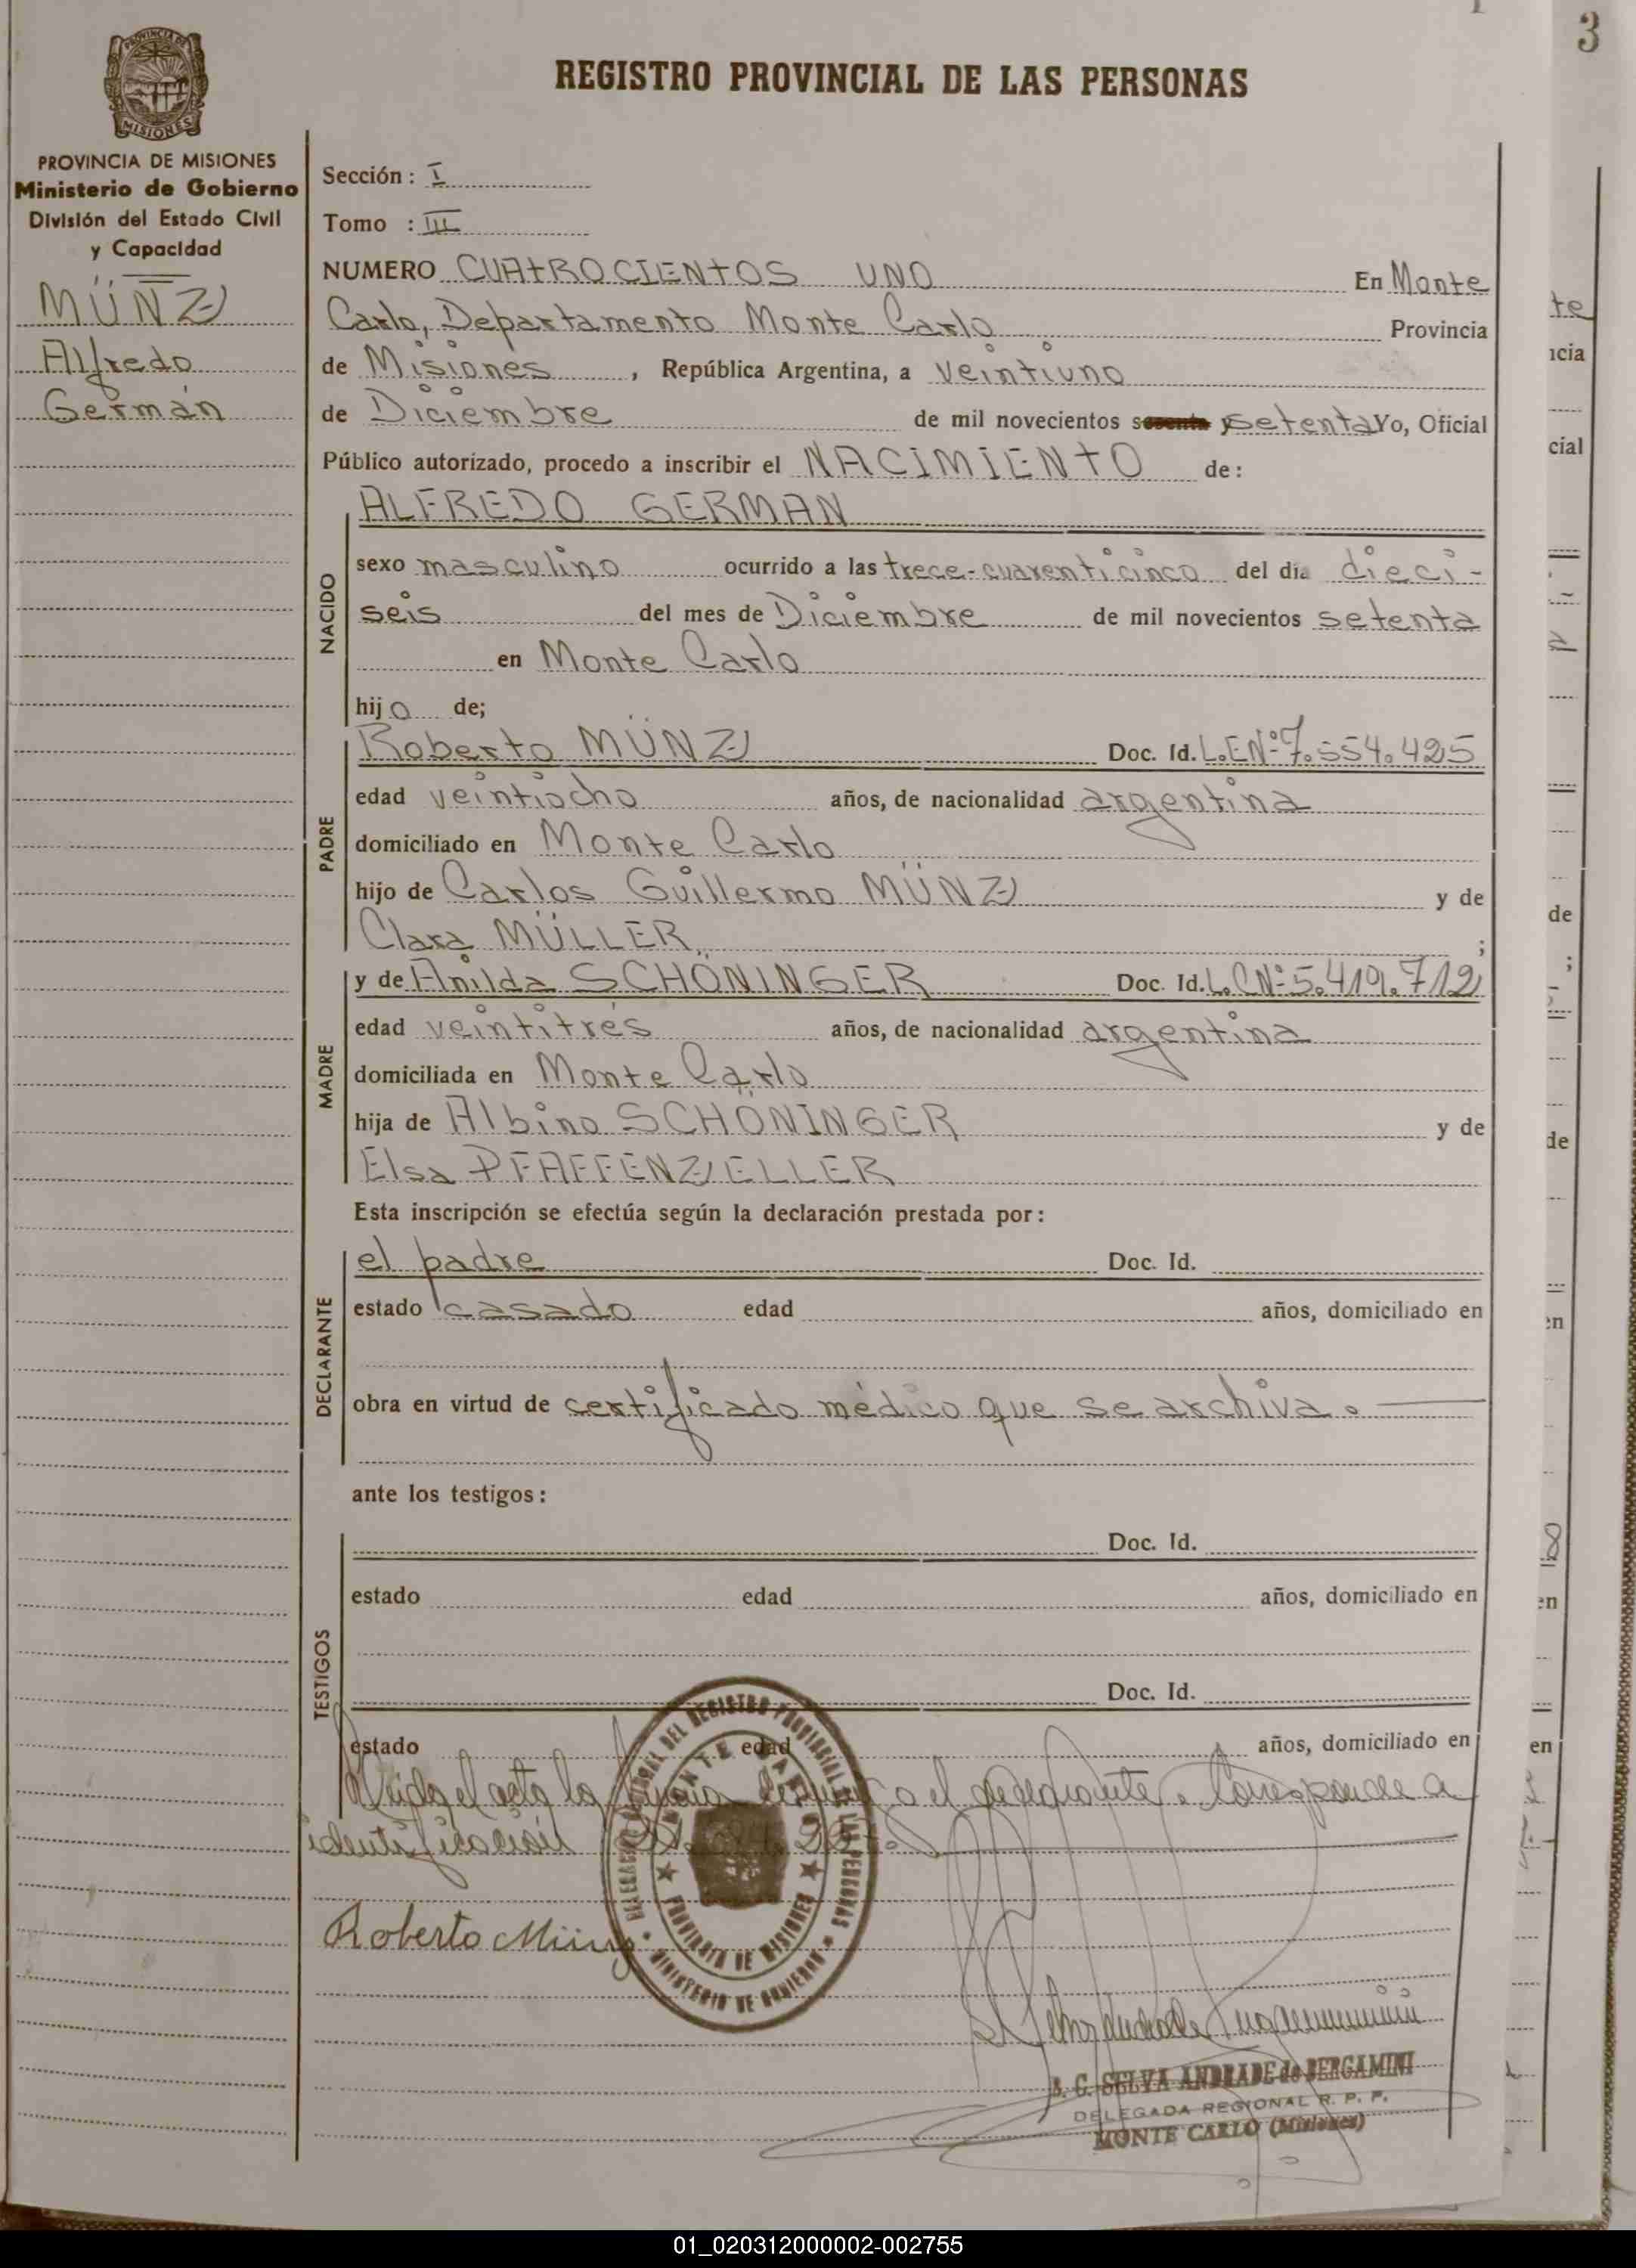 3
REGISTRO PROVINCIAL DE LAS PERSONAS
PROVINCIA DE MISIONES
Ministerio de Gobierno
División del Estado Civil
y Capacidad
MÜNZ
Alfredo
Germán
Sección: I
Tomo : III
NUMERO CUATROCIENTOS UNO En Monte
Carlo, Departamento Monte Carlo Provincia
de Misiones, República Argentina, a veintiuno
de Diciembre de mil novecientos setenta Yo, Oficial
Público autorizado, procedo a inscribir el NACIMIENTO de:
NACIDO
ALFREDO GERMAN
sexo masculino ocurrido a las trece-cuarenticinco del día dieci-
seis del mes de Diciembre de mil novecientos setenta
en Monte Carlo
hijo de;
PADRE
Roberto MÜNZ Doc. Id. L.E.Nº 7.554.425
edad veintiocho años, de nacionalidad argentina
domiciliado en Monte Carlo
hijo de Carlos Guillermo MÜNZ y de
Clara MÜLLER ;
MADRE
y de Anilda SCHÖNINGER Doc. Id. L.C Nº 5.419.712
edad veintitrés años, de nacionalidad argentina
domiciliada en Monte Carlo
hija de Albino SCHÖNINGER y de
Elsa PFAFFENZELLER
Esta inscripción se efectúa según la declaración prestada por:
DECLARANTE
el padre Doc. Id.
estado casado edad años, domiciliado en
obra en virtud de certificado médico que se archiva.
ante los testigos:
TESTIGOS
Doc. Id.
estado edad años, domiciliado en
Doc. Id.
estado edad años, domiciliado en
el acta la firma el Corresponde a
identificación
DELEGACION REGIONAL DEL REGISTRO PROVINCIAL DE LAS PERSONAS
MINISTERIO DE GOBIERNO
MONTE CARLO
PROVINCIA DE MISIONES
Roberto Münz
B. C. SELVA ANDRADE de BERGAMINI
DELEGADA REGIONAL R. P. P.
MONTE CARLO (Misiones)
te
ncia
cial
de
;
de
en
en
en
01_020312000002-002755